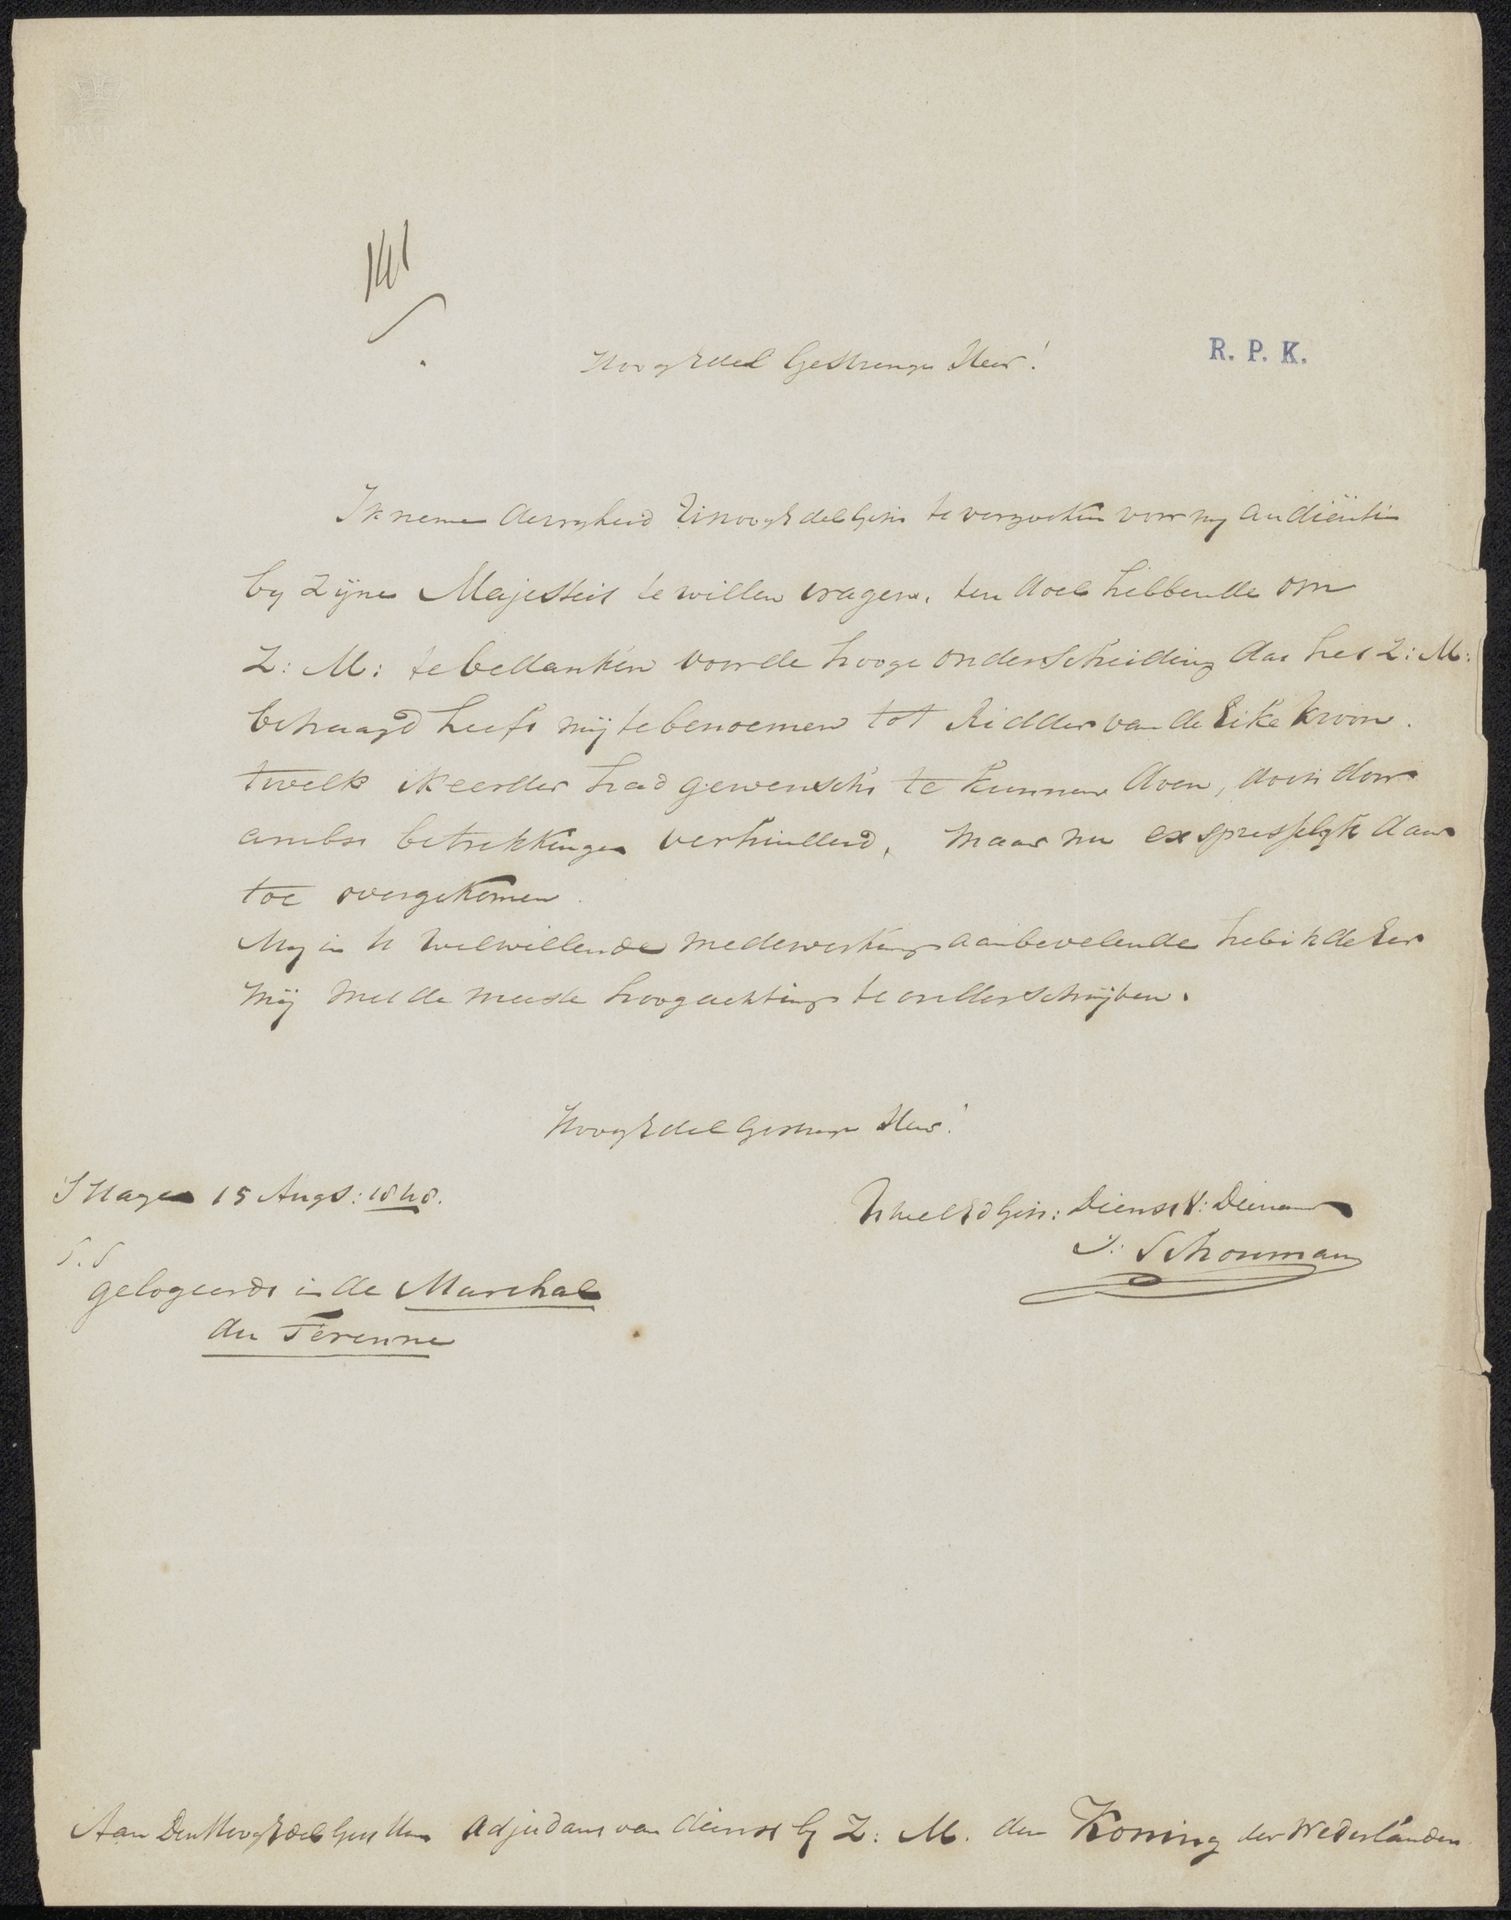 R. P. K.
HoogEdel Gestrenge Heer!
Ik neme de vryheid UHoogEdelGestr te verzoeken voor my audiëntie
by Zÿne Majesteit te willen vragen, ten doel hebbende om
Z: M: te bedanken voor de hooge onderscheiding dat het Z: M:
behaagd heeft mij te benoemen tot Ridder van de Eike Kroon.
twelk ik eerder had gewenscht te kunnen doen, doch door
ambts betrekkingen verhinderd, maar nu expresselyk daar
toe overgekomen.
My in U welwillende medewerking aanbevelende heb ik de Eer
mij met de meeste hoogachting te onderschrijven.
HoogEdel Gestrenge Heer!
S Hage 15 Augs: 1848.
UHoelEdGestr: Dienst V: Dienaar
J: Schouman
gelogeerd in de Marchal
du Terenne
Aan Den HoogEdelGest Heer Adjudant van dienst by Z: M. den Koning der Nederlanden